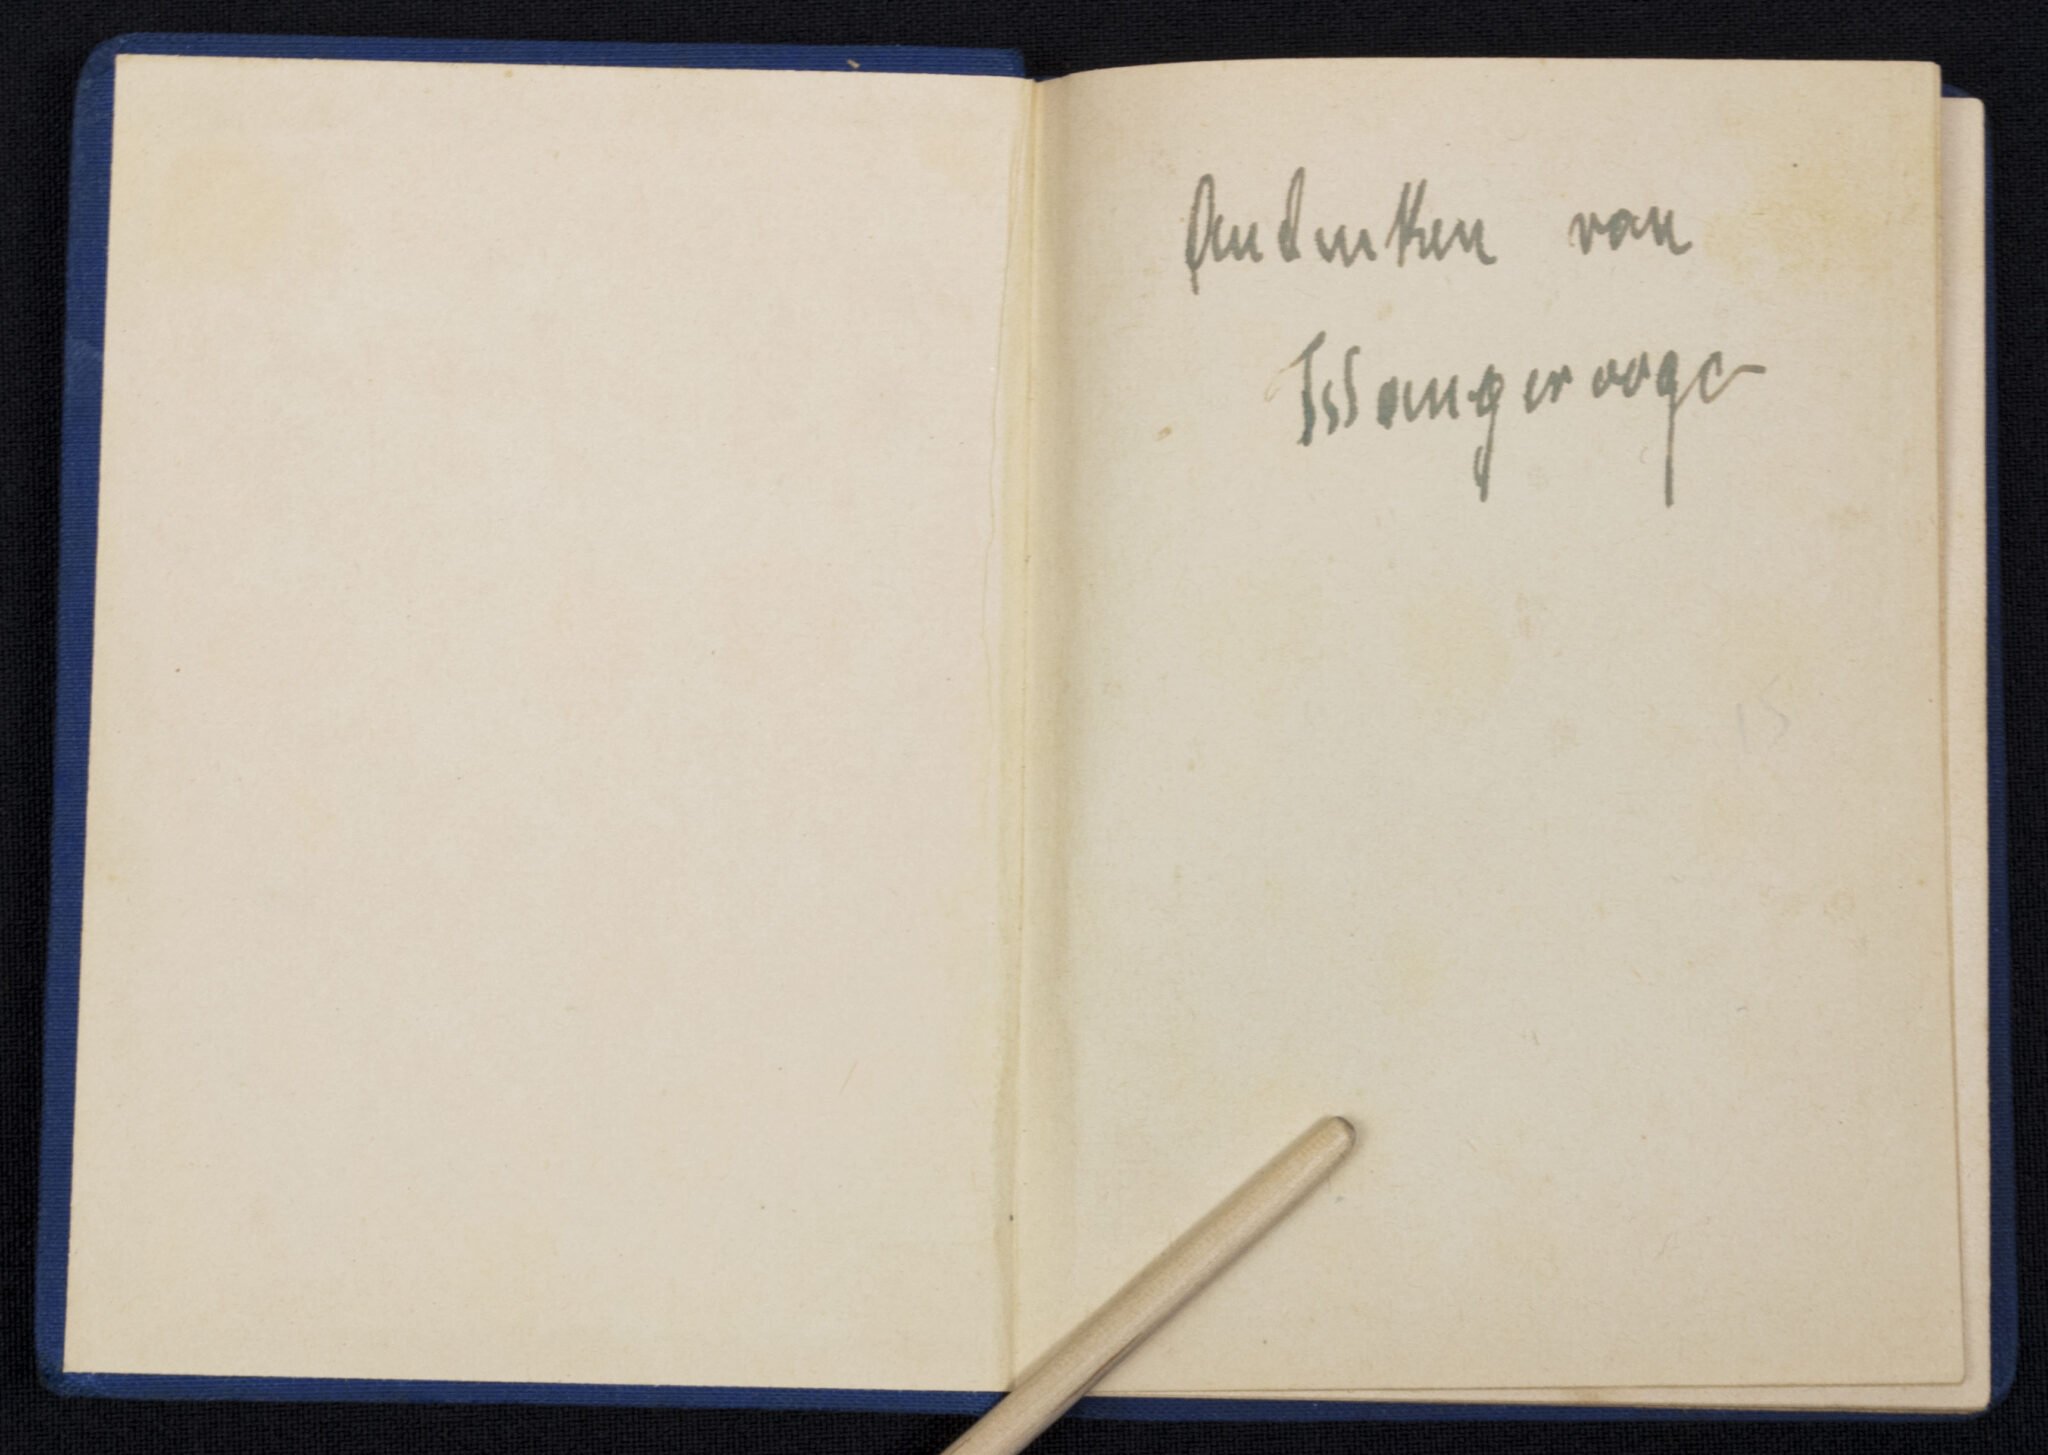 Andenken von
Wangerooge
15